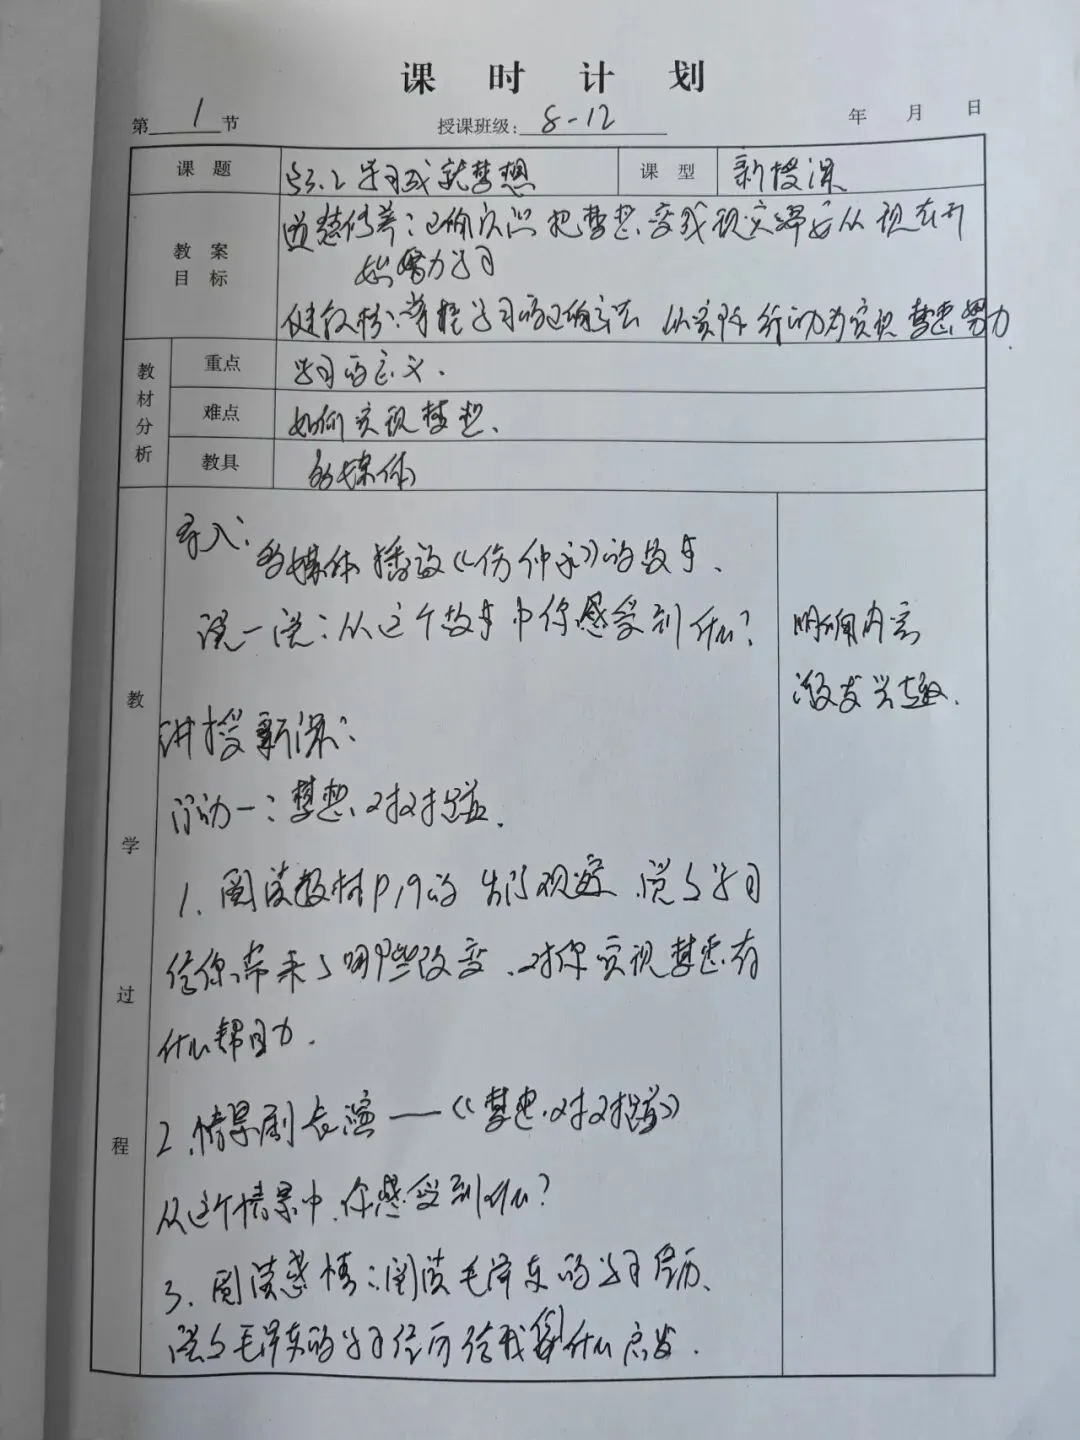 课时计划
第 1 节 授课班级: 8-12 年 月 日
课题 §3.2 学习成就梦想 课型 新授课
教案目标 道德修养:正确认识把梦想变成现实需要从现在开
始努力学习
健全人格:掌握学习的正确方法 从实际行动为实现梦想努力.
教材分析 重点 学习的意义.
难点 如何实现梦想.
教具 多媒体
教学过程
导入:
多媒体播放《伤仲永》的故事.
说一说:从这个故事中你感受到什么?
明确内容
激发兴趣.
讲授新课:
活动一:梦想对对碰.
1.阅读教材P19的 生活观察,说与学习
给你带来了哪些改变.对你实现梦想有
什么帮助.
2.情景剧表演——《梦想对对碰》
从这个情景中,你感受到什么?
3.阅读感悟:阅读毛泽东的学习经历.
说与毛泽东的学习经历给我们什么启发.